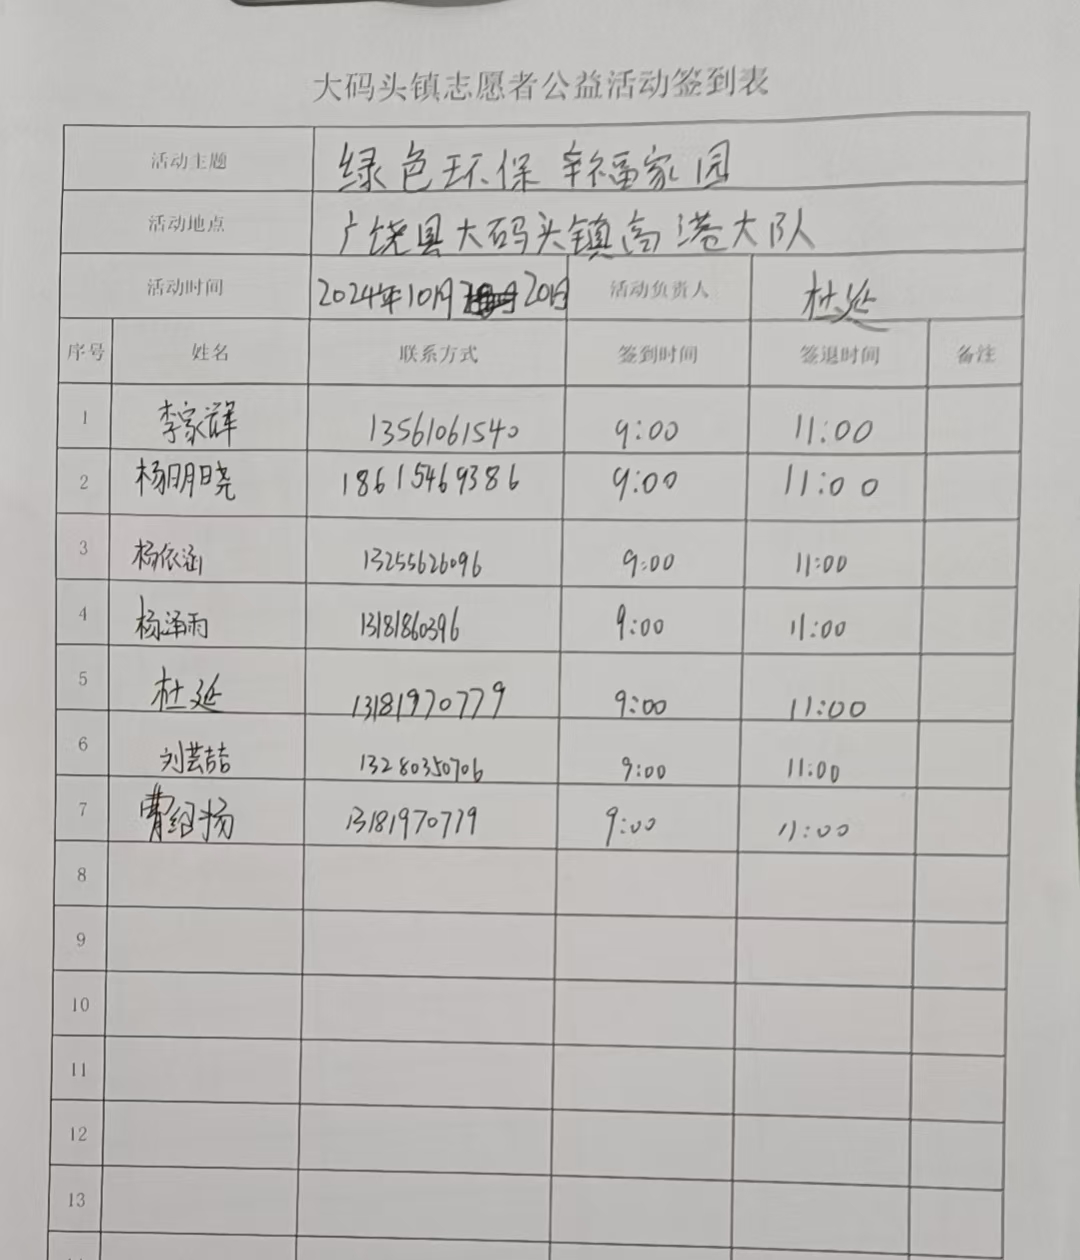 大码头镇志愿者公益活动签到表
活动主题 绿色环保 幸福家园
活动地点 广饶县大码头镇高港大队
活动时间 2024年10月20日 活动负责人 杜延
序号 姓名 联系方式 签到时间 签退时间 备注
1 李家辉 13561061540 9:00 11:00
2 杨明晓 18615469386 9:00 11:00
3 杨依涵 13255626096 9:00 11:00
4 杨泽雨 13181860396 9:00 11:00
5 杜延 13181970779 9:00 11:00
6 刘芸喆 13280350706 9:00 11:00
7 曹绍扬 13181970779 9:00 11:00
8
9
10
11
12
13